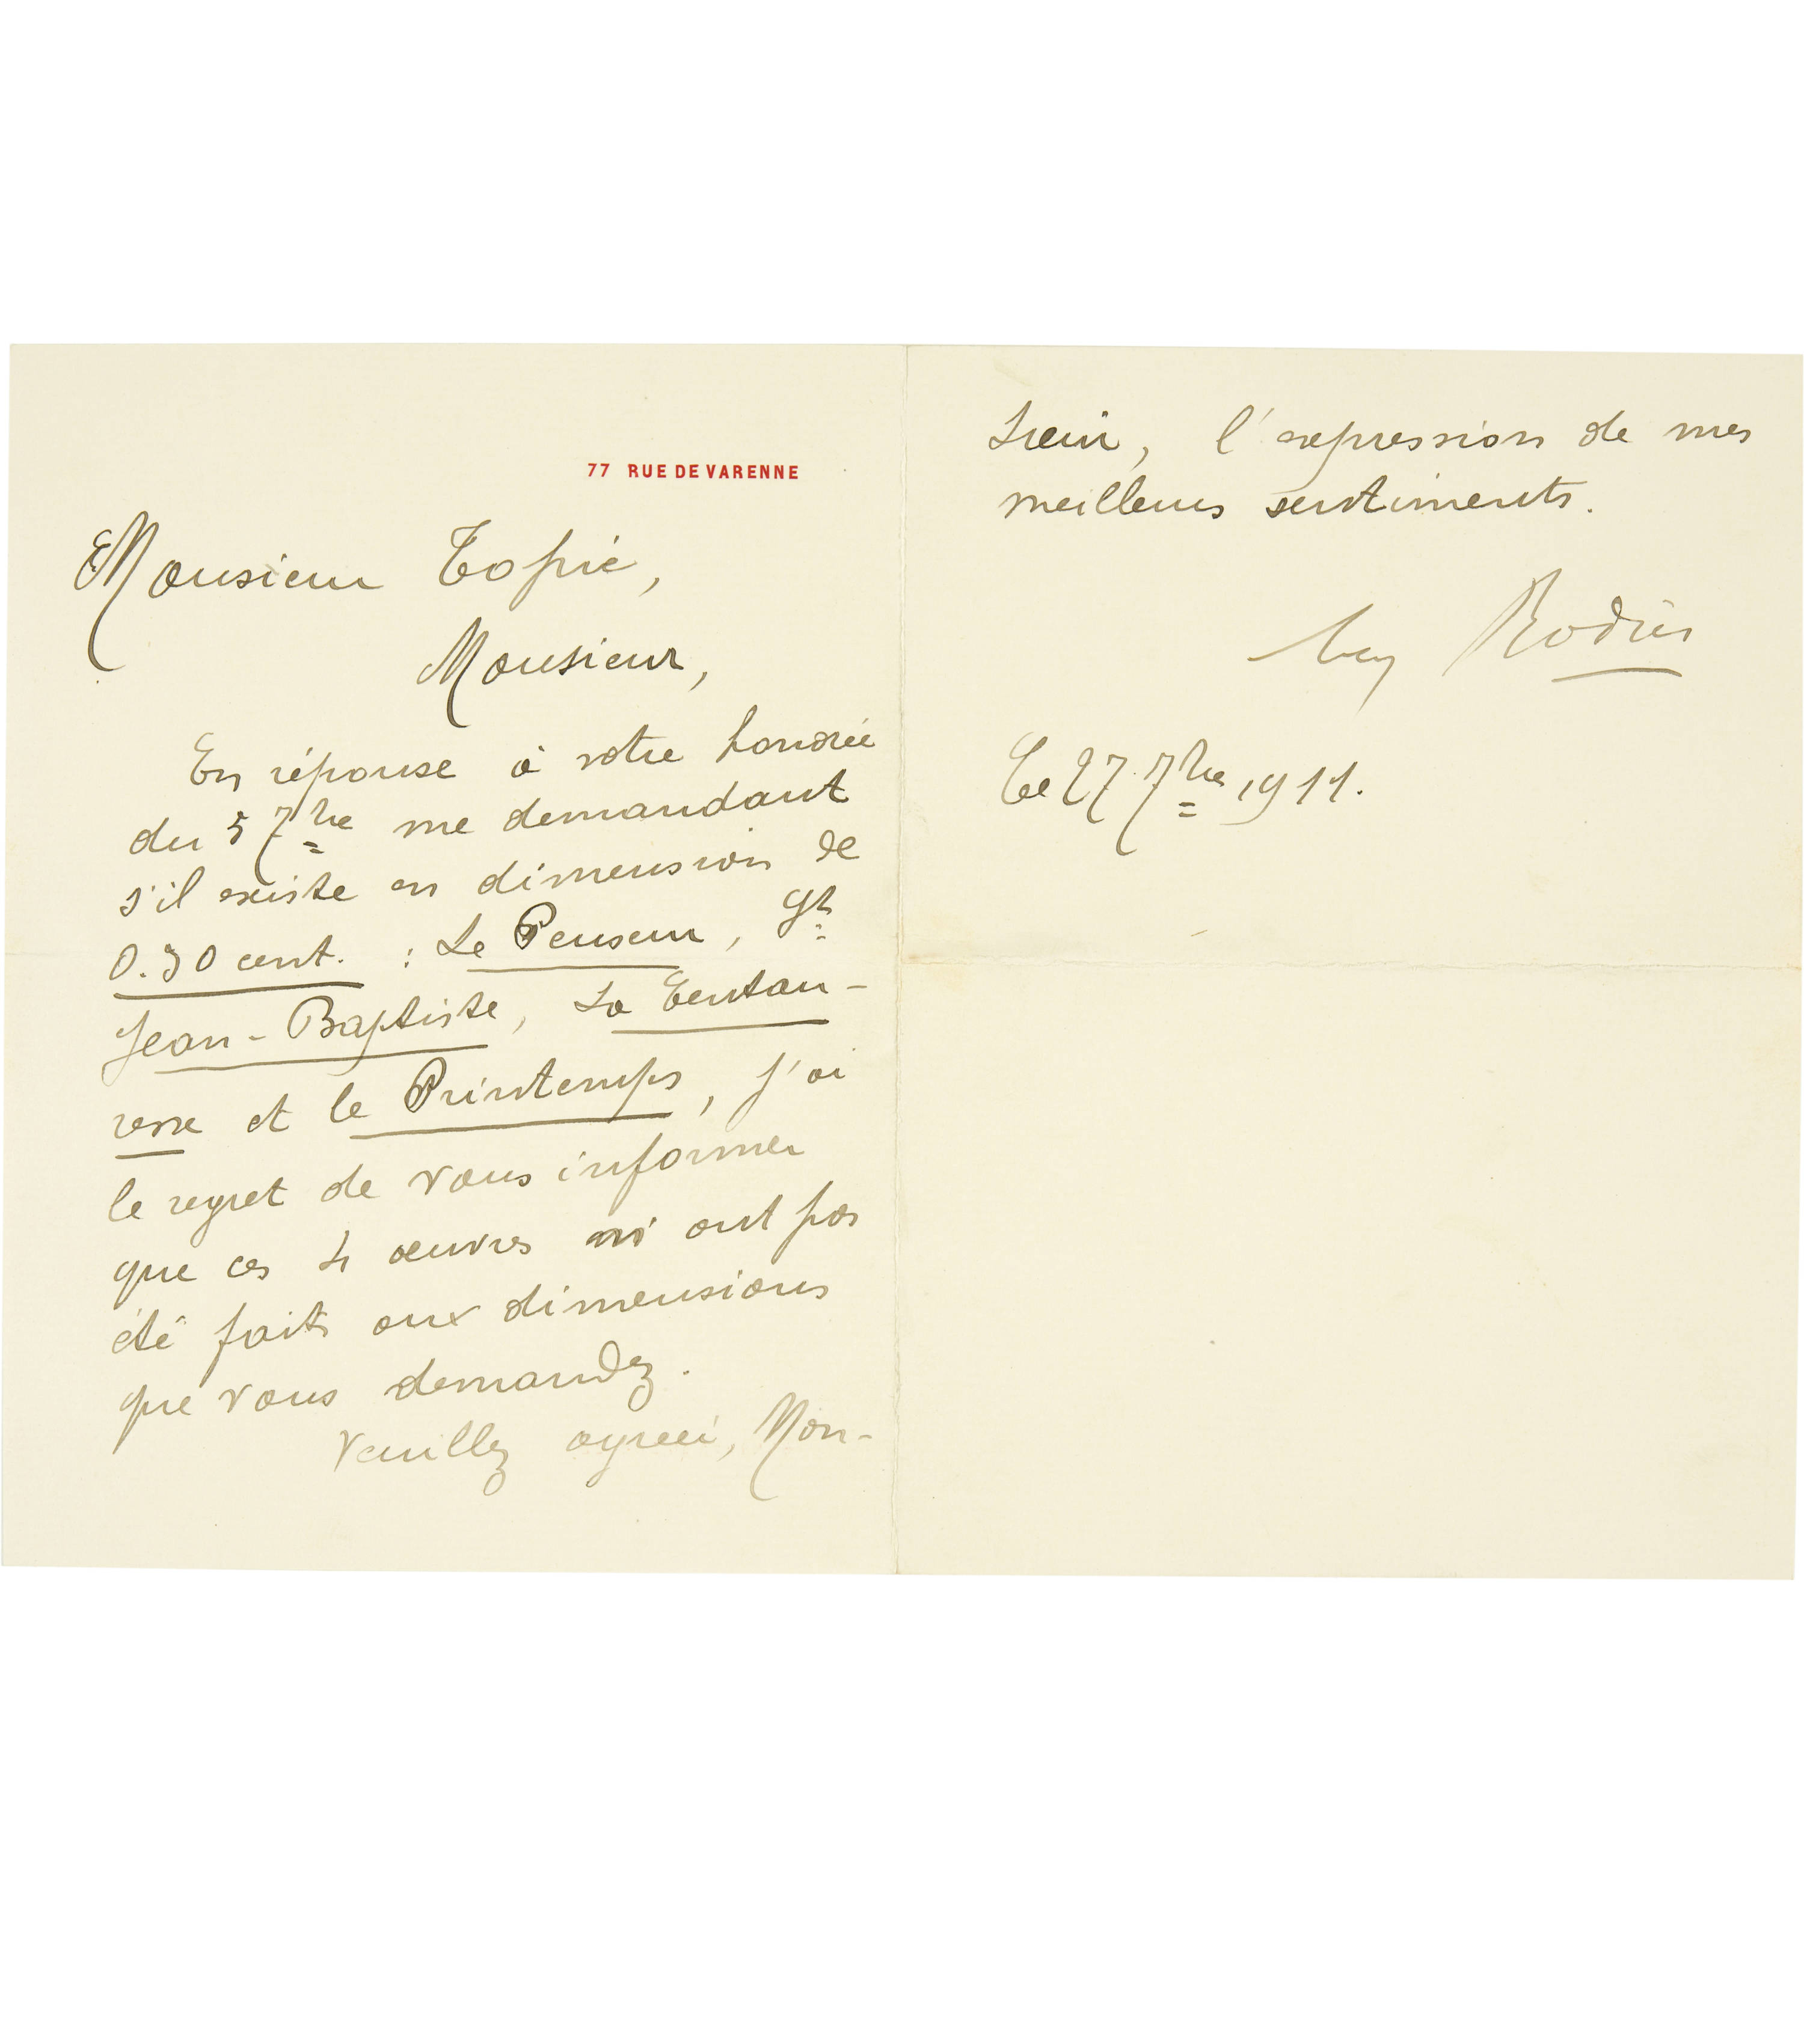 77 RUE DE VARENNE
Monsieur Tapié,
Monsieur,
En réponse à votre honorée
du 5 7bre me demandant
s'il existe en dimension de
0.30 cent. : Le Penseur, St
Jean-Baptiste, La Centau-
resse et le Printemps, j'ai
le regret de vous informer
que ces 4 œuvres n'ont pas
été faits aux dimensions
que vous demandez.
Veuillez agréer, Mon-
sieur, l'expression de mes
meilleurs sentiments.
Aug Rodin
Le 27 7bre 1911.